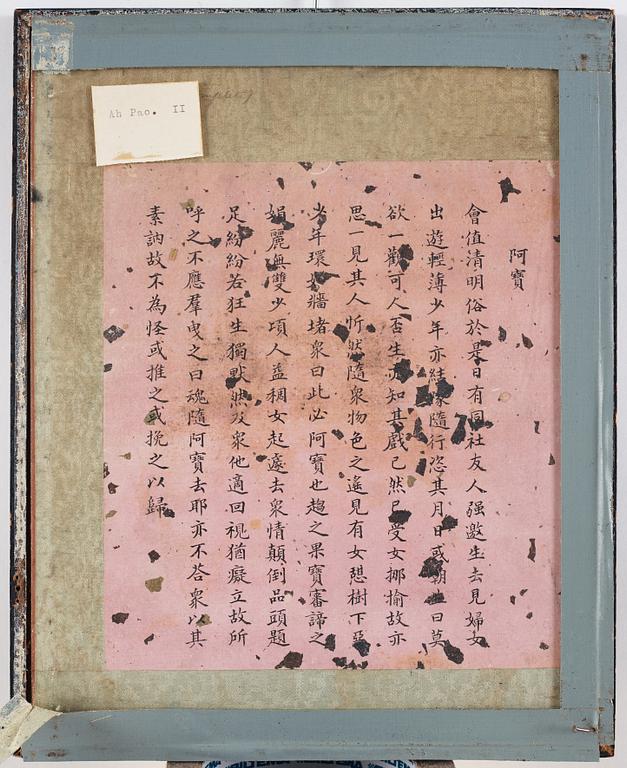 Ah Pao. II
阿寶
會值清明俗於是日有同社友人强邀生去見婦女
出遊輕薄少年亦結隊隨行恣其月旦或嘲生曰莫
欲一觀可人否生亦知其戲己然以受女揶揄故亦
思一見其人忻然隨衆物色之遙見有女憩樹下惡
少年環如牆堵衆曰此必阿寶也趨之果寶審諦之
娟麗無雙少頃人益稠女起遽去衆情顛倒品頭題
足紛紛若狂生獨默然及衆他適回視猶癡立故所
呼之不應羣曳之曰魂隨阿寶去耶亦不答衆以其
素訥故不為怪或推之或挽之以歸